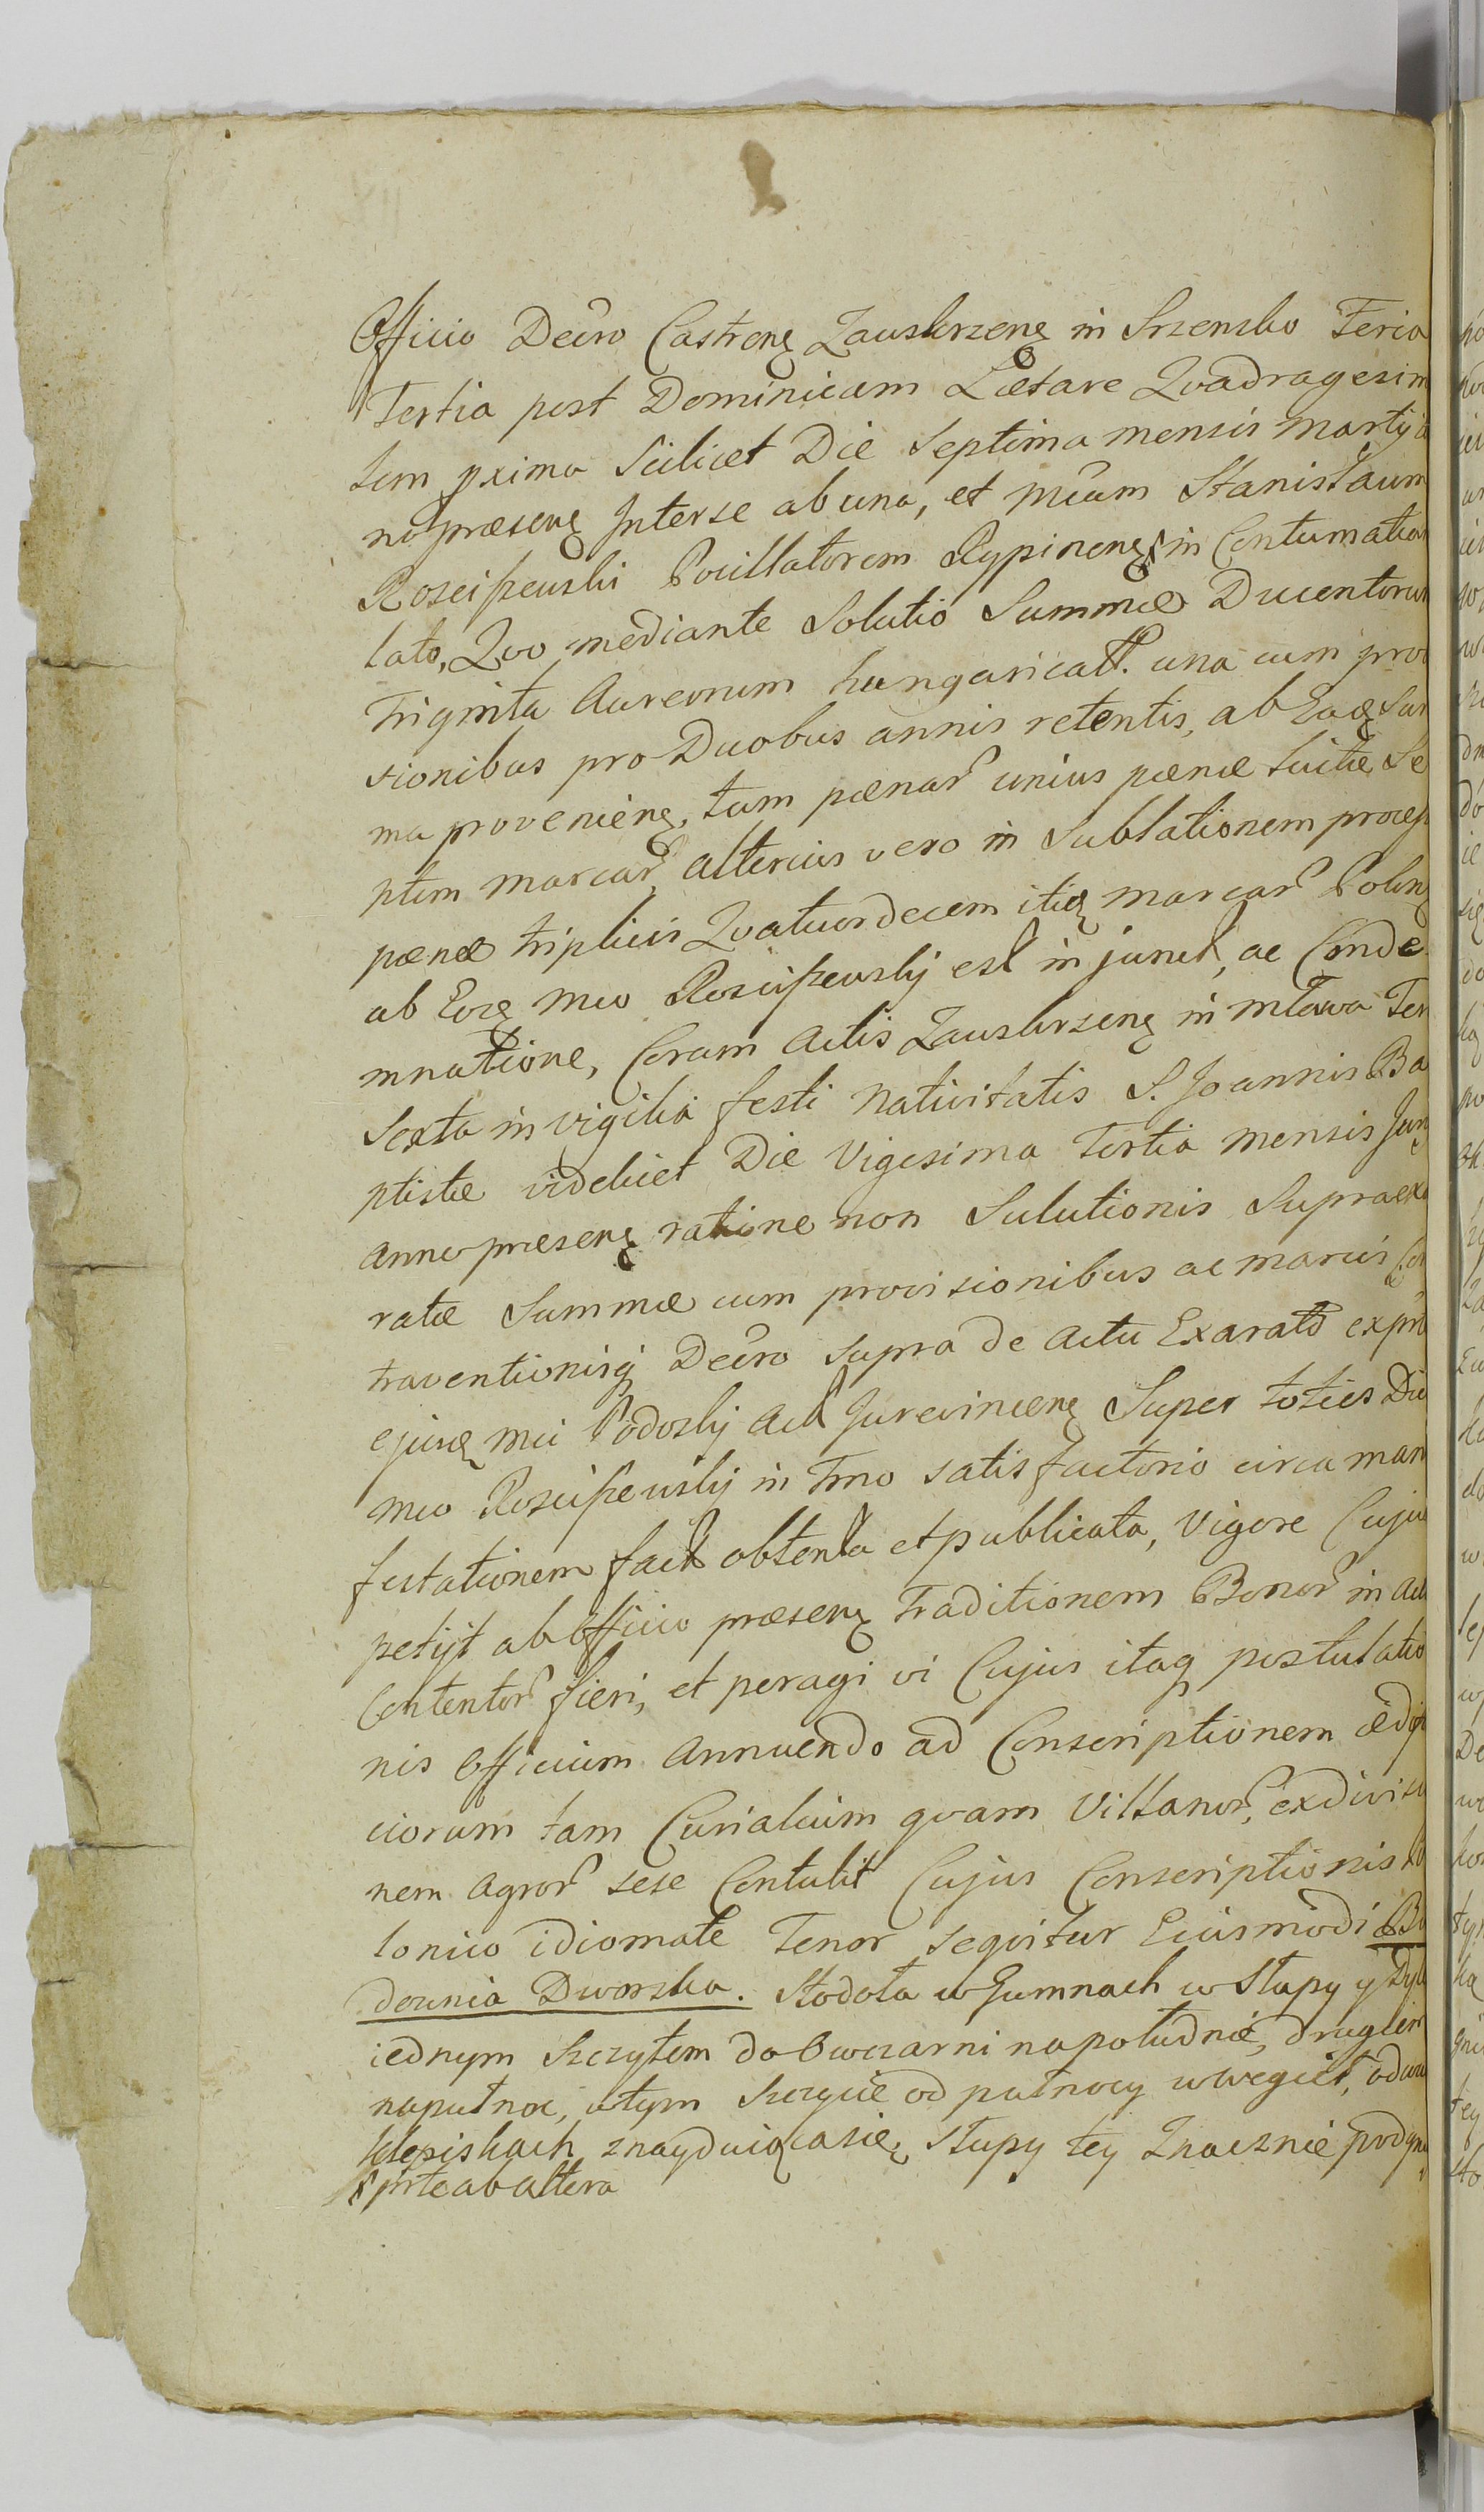 Officio Decro Castrenę Zauskrzenę in Srzensko Feria
Tertia post Dominicam Lætare Qvadragesim
lem pxima Scilicet Die Septima mensis Martij a
no præsenę Inter se ab una, et Mcum Stanisłaum
Rosciszewski Pocillatorem Rypinenę in Contumatiam
lato, Qvo mediante Solutio Summæ Ducentorum
Triginta Aureorum hungaricall. una cum provi
sionibus pro Duobus annis retentis, ab Eadę Sum
ma provenienę, tum pœnar unius pœnæ luitæ Se
ptem marcar, alterius vero in Sublationem process
pœnæ triplicis Qvatuordecem itidę marcar Polonę
ab Eodę Mco Rosciszewsky est injunct, ac Conde
mnatione, Coram Actis Zauskrzenę in Mława Fer
Sexta in vigilia festi Nativitatis S. Joannis Ba
ptistæ videlicet Die Vigesima Tertia mensis Junę
Anno præsenę ratione non Solutionis Supraexa
ratæ Summæ cum provisionibus ac marcis Con
traventionisq Decro supra de Actu Exarato ex prte
ejusdę Mci Podosky Act Jurevincenę Super toties Dic
Mco Rosciszewsky in Tmno satisfactorio circa mani
festationem fact obtenta et publicata, Vigore Cujus
petijt ab Officio præsenę Traditionem Bonor in Act
Contentor fieri, et peragi vi Cujus itaq postulatio
nis Officium Annuendo ad Conscriptionem ædifi
ciorum tam Curialium qvam Villanor, ex divisio
nem Agror sese Contulit Cujus Conscriptionis Po
lonico idiomate Tenor seqvitur Eiusmodi Bu
dounia Dworska. Stodoła w Gumnach w Słupy y Dyle
iednym Szczytem do Owczarni na południe, drugiem
na pułnoc, w tym Szczycie od pułnocy w węgieł, od
klepiskach znayduiącasię, słupy tey Znacznie podgni
prte ab altera